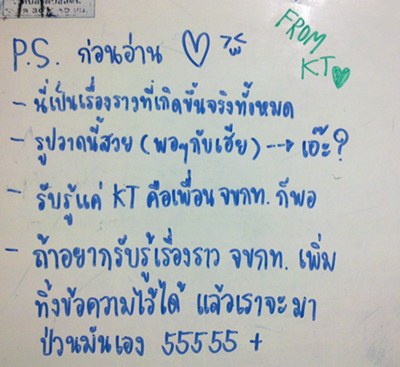 FROM
KT♥
P.S. ก่อนอ่าน ♡
- นี่เป็นเรื่องราวที่เกิดขึ้นจริงทั้งหมด
- รูปวาดนี้สวย (พอๆกับเฮีย) --> เอ๊ะ?
- รับรู้แค่ KT คือเพื่อน จขกท. ก็พอ
- ถ้าอยากรับรู้เรื่องราว จขกท. เพิ่ม
ทิ้งข้อความไว้ได้ แล้วเราจะมา
ป่วนมันเอง 55555 +